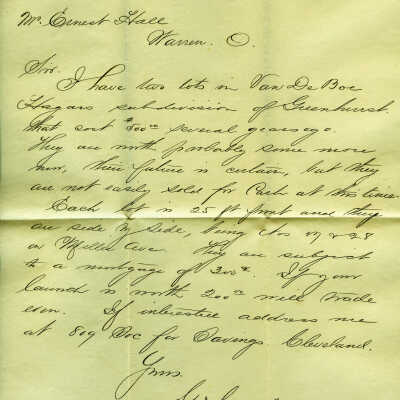 Mr. Ernest Hall
Warren. O.
Sir:
I have two lots in Van De Boe
Hagars subdivision of Greenhurst.
that cost $500 00 several years ago.
They are worth probably some more
now, their future is certain, but they
are not easily sold for Cash at this time.
Each lot is 25 ft front and they
are side by side, being Nos 27 & 28
on Miller Ave They are subject
to a mortgage of 200 00. If your
launch is worth 200 00 will trade
even. If interested address me
at 809 Soc for Savings. Cleveland.
Yours